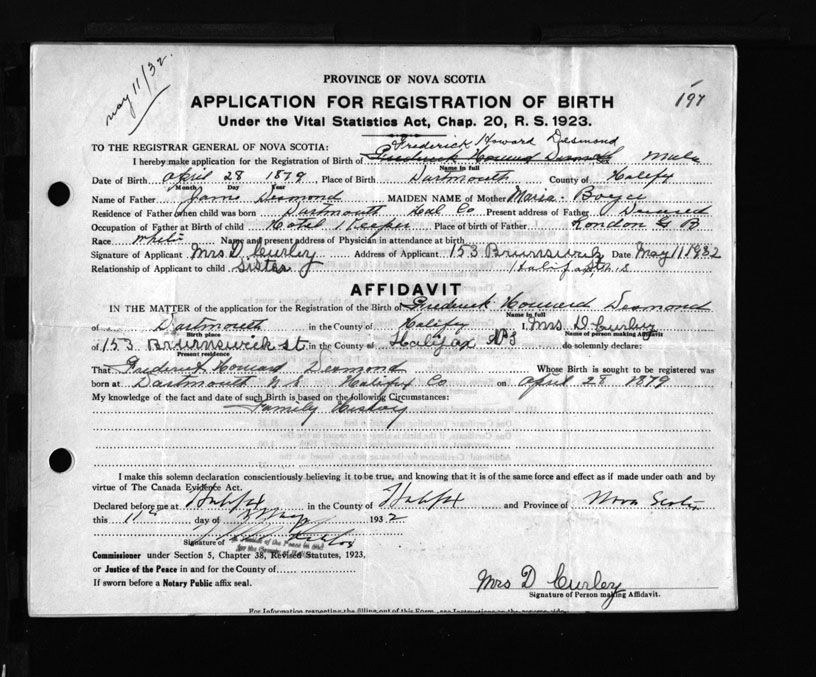 may 11/32.
PROVINCE OF NOVA SCOTIA
197
APPLICATION FOR REGISTRATION OF BIRTH
Under the Vital Statistics Act, Chap. 20, R. S. 1923.
TO THE REGISTRAR GENERAL OF NOVA SCOTIA: Frederick Howard Desmond
I hereby make application for the Registration of Birth of Frederick Howard Desmond Sex Male
Name in full
Date of Birth april 28 1879 Place of Birth Dartmouth County of Halifx
Month Day Year
Name of Father James Desmond MAIDEN NAME of Mother Maria
Residence of Father when child was born Dartmouth Co Present address of Father
Occupation of Father at Birth of child Hotel Keeper Place of birth of Father London G B
Race White Name and present address of Physician in attendance at birth
Signature of Applicant Mrs D Curley Address of Applicant 153 Date May 11 1932
Relationship of Applicant to child sister
AFFIDAVIT
IN THE MATTER of the application for the Registration of the Birth of Frederick Howard Desmond
Name in full
of Dartmouth in the County of Halifx I, Mrs D Curley
Birth place Name of person making Affidavit
of 153 Brunswick st in the County of Halifax N S do solemnly declare:
Present residence
That Frederick Howard Desmond Whose Birth is sought to be registered was
born at Dartmouth N S Halifax Co on april 28 1879
My knowledge of the fact and date of such Birth is based on the following Circumstances:
Family History
I make this solemn declaration conscientiously believing it to be true, and knowing that it is of the same force and effect as if made under oath and by
virtue of The Canada Evidence Act.
Declared before me at Halifax in the County of Halifax and Province of Nova Scotia
this 11th day of May 1932
Signature of
Commissioner under Section 5, Chapter 38, Revised Statutes, 1923,
or Justice of the Peace in and for the County of
If sworn before a Notary Public affix seal.
Mrs D Curley
Signature of Person making Affidavit.
For Information respecting the filling out of this Form, see Instructions on the opposite side.